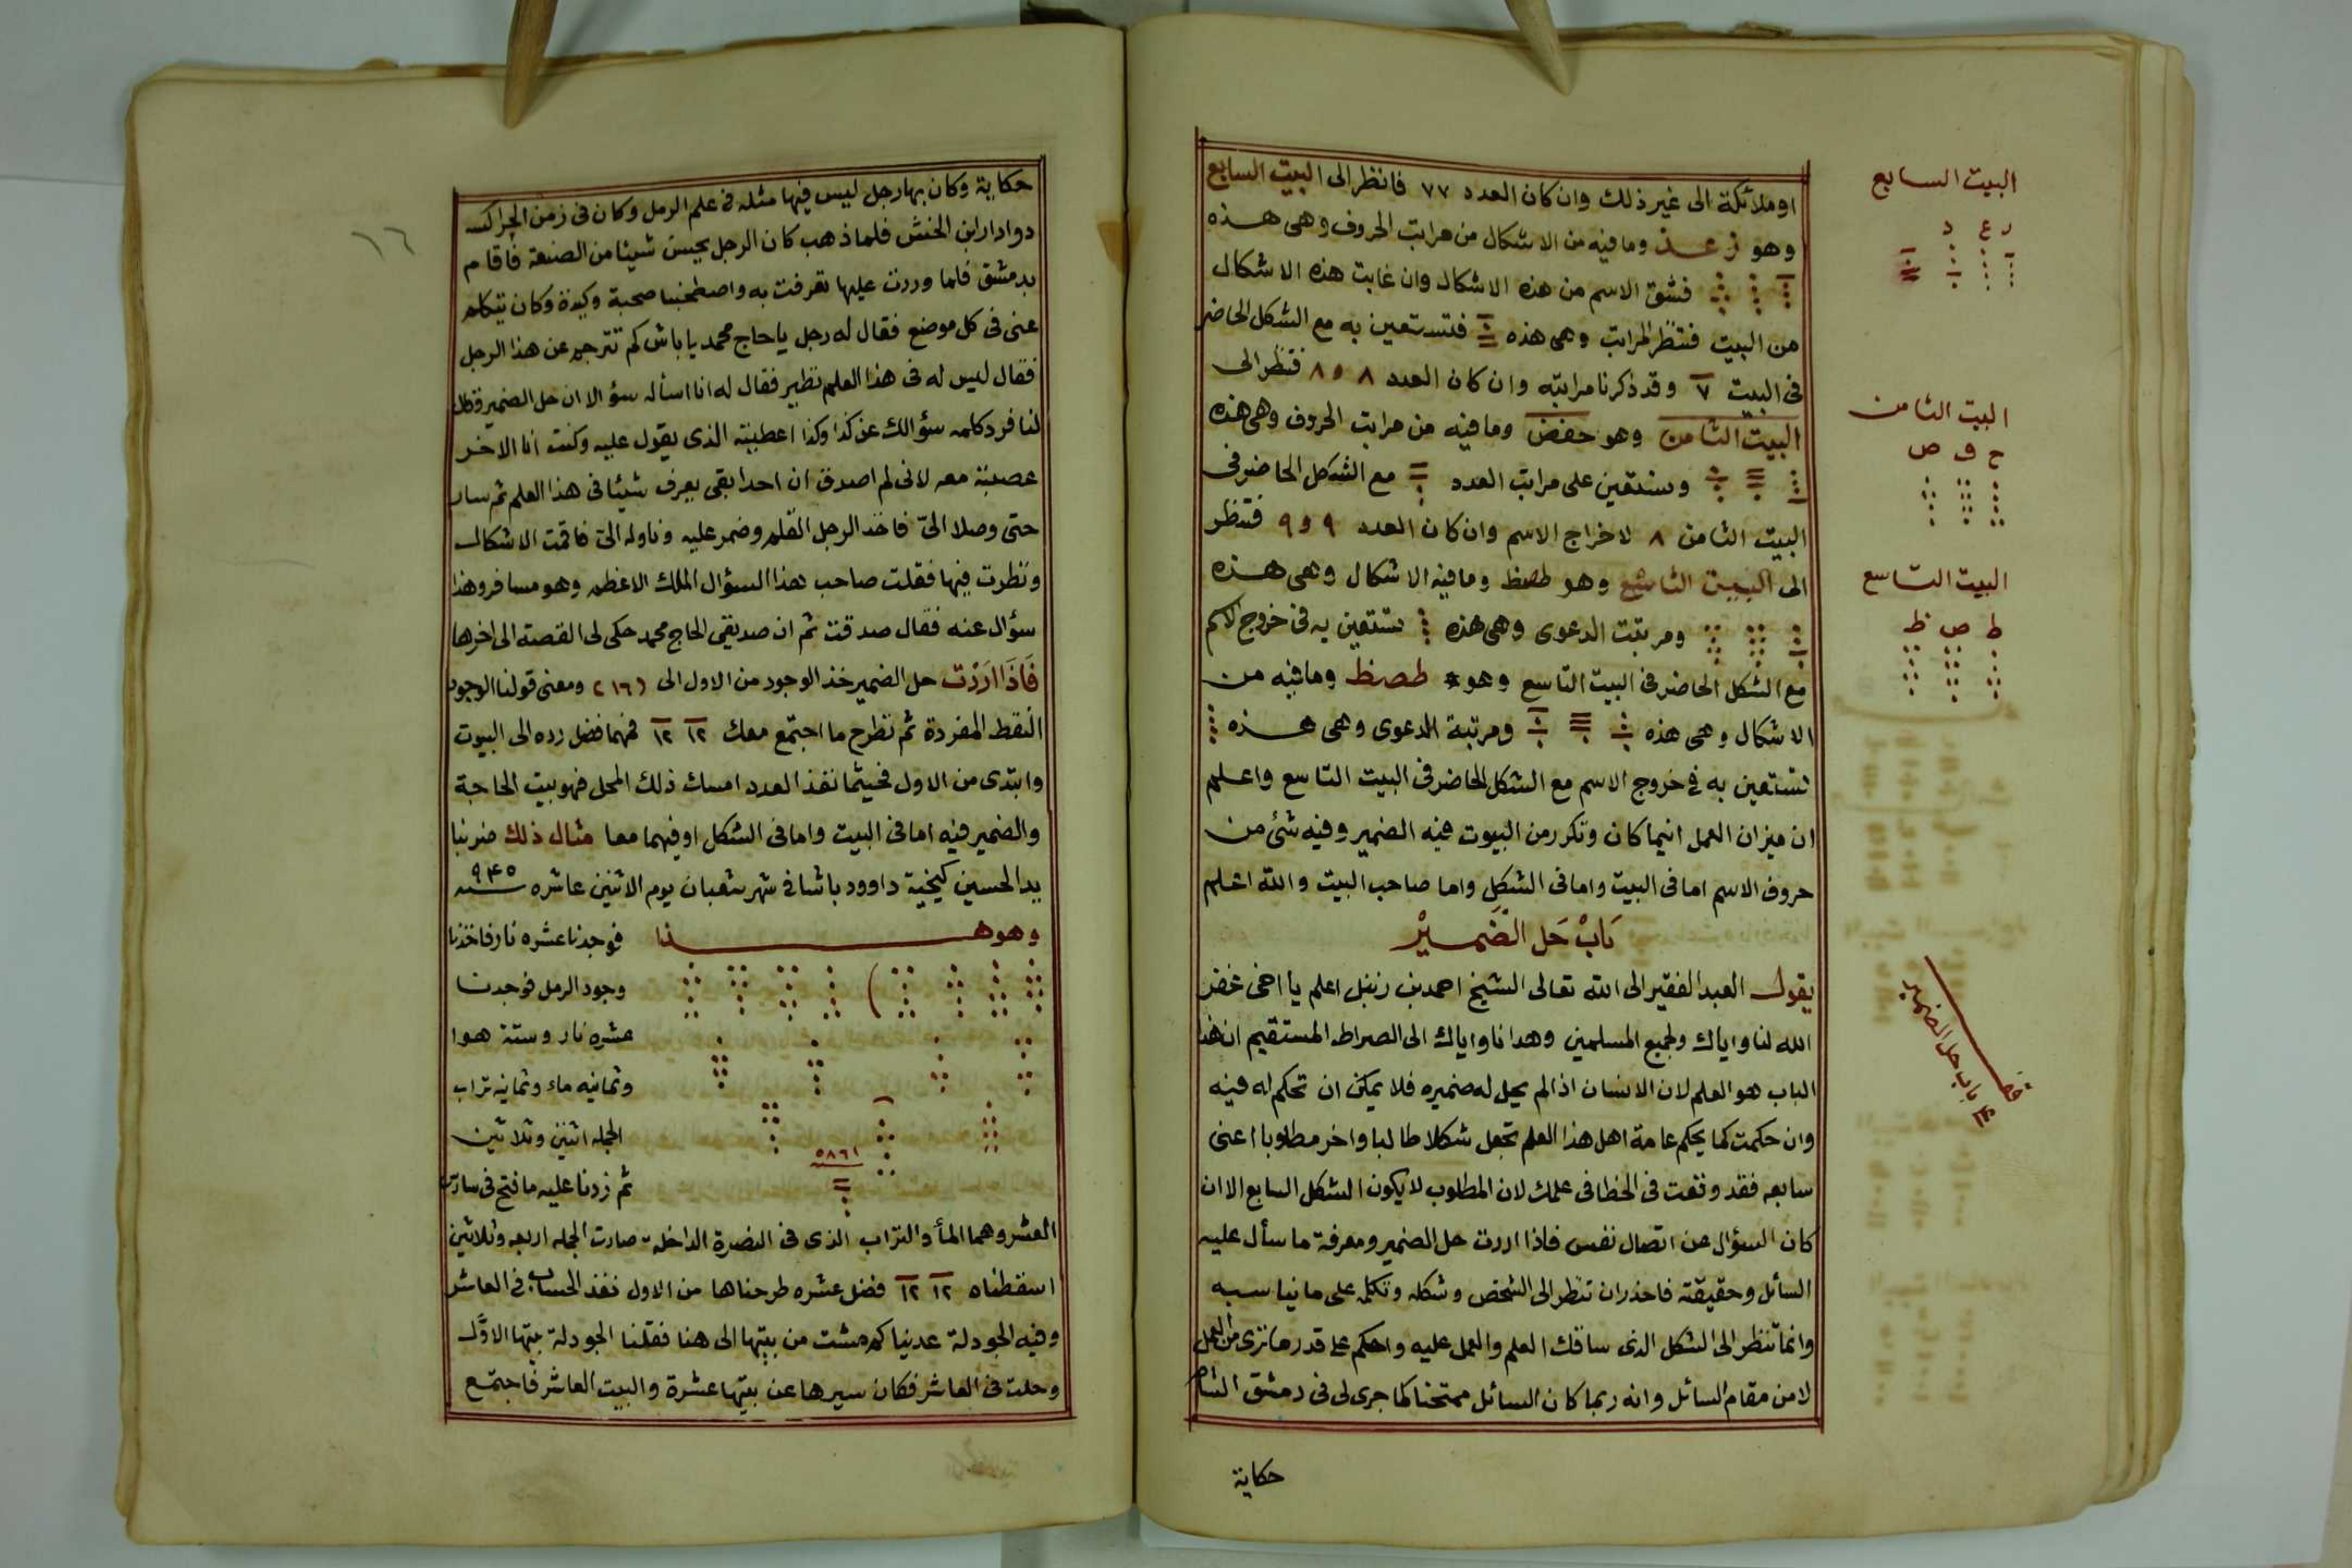 او ملائكة الى غير ذلك وان كان العدد ٧٧ فانظر الى البيت السابع
وهو زعذ وما فيه من الاشكال من مراتب الحروف وهى هذه
فشق الاسم من هذه الاشكال وان غابت هذه الاشكال
من البيت فتنظر المراتب وهى هذه فتستعين به مع الشكل الحاضر
فى البيت ٧ وقد ذكرنا مراتبه وان كان العدد ٨ و ٨ فتنظر الى
البيت الثامن وهو حفض وما فيه من مراتب الحروف وهى هذه
وستقين على مراتب العدد مع الشكل الحاضر فى
البيت الثامن ٨ لاخراج الاسم وان كان العدد ٩ و ٩ فتنظر
الى البيت التاسع وهو طصظ وما فيه الاشكال وهى هذه
ومرتبت الدعوى وهى هذه ستقين به فى خروج الاسم
مع الشكل الحاضر فى البيت التاسع وهو طصظ وما فيه من
الاشكال وهى هذه ومرتبة الدعوى وهى هذه
تستعين به فى خروج الاسم مع الشكل الحاضر فى البيت التاسع واعلم
ان ميزان العمل اينما كان وتكرر من البيوت فيه الضمير وفيه شئ من
حروف الاسم اما فى البيت واما فى الشكل واما صاحب البيت والله اعلم
بَابْ حَل الضَمير
يقول العبد الفقير الى الله تعالى الشيخ احمد بن زنبل اعلم يا اخى غفر
الله لنا واياك ولجميع المسلمين وهدانا واياك الى الصراط المستقيم ان هذا
الباب هو العلم لان الانسان اذا لم يحل له ضميره فلا يمكن ان تحكم له فيه
وان حكمت كما يحكم عامة اهل هذا العلم تجعل شكلا طالبا واخر مطلوبا اعنى
سابعه فقد وقعت فى الخطا فى علمك لان المطلوب لا يكون الشكل السابع الا ان
كان السؤال عن اتصال نفس فاذا اردت حل الضمير ومعرفة ما سأل عليه
السائل وحقيقته فاحذر ان تنظر الى الشخص وشكله وتكلمه على ما يناسبه
وانما تنظر الى الشكل الذى ساقك العلم والعمل عليه واحكم على قدر ما ترى من العمل
لا من مقام السائل وانه ربما كان السائل ممتحنا كما جرى لى فى دمشق الشام
حكاية
البيت السابع
البيت الثامن
ح ف ض
البيت التاسع
ط ص ظ
باب حل الضمير
١٦
حكاية وكان بها رجل ليس فيها مثله فى علم الرمل وكان فى زمن الجراكسه
دوادار ابن الخنش فلما ذهب كان الرجل يحسن شيئا من الصنعة فأقام
بدمشق فلما وردت عليها تعرفت به واصطحبنا صحبة وكيدة وكان يتكلم
عنى فى كل موضع فقال له رجل يا حاج محمد يا باش كم تترجم عن هذا الرجل
فقال ليس له فى هذا العلم نظير فقال له انا اسأله سؤالا ان حل الضمير وقال
لنا فرد كلمه سؤالك عن كذا وكذا اعطيته الذى يقول عليه وكنت انا الاخر
عصبته معه لانى لم اصدق ان احدا بقى يعرف شيئا فى هذا العلم ثم سار
حتى وصلا الىّ فاخذ الرجل القلم وضمر عليه وناوله الىّ فاقمت الاشكال
ونظرت فيها فقلت صاحب هذا السؤال الملك الاعظم وهو مسافر وهذا
سؤال عنه فقال صدقت ثم ان صديقى الحاج محمد حكى لى القصة الى اخرها
فَاذَا ارَدْت حل الضمير خذ الوجود من الاول الى ومعنى قولنا الوجود
النقط المفردة ثم تطرح ما اجتمع معك ١٢ ١٢ فمهما فضل رده الى البيوت
وابتدى من الاول فحيثما نفذ العدد امسك ذلك المحل فهو بيت الحاجة
والضمير فيه اما فى البيت واما فى الشكل او فيهما معا مثال ذلك ضربنا
بيد الحسين كيخية داوود باشا فى شهر شعبان يوم الاثنين عاشره سنه ٩٤٥
وهو هذا فوجدنا عشره نار فاخذنا
وجود الرمل فوجدنا
عشره نار وستة هوا
وثمانيه ماء وثمانيه تراب
الجمله اثنين وثلاثين
٥٨٦١
ثم زدنا عليه ما فتح فى سادس
العشر وهما الماء والتراب الذى فى النصرة الداخلة صارت الجمله اربعه وثلاثين
اسقطناه ١٢ ١٢ فضل عشره طرحناها من الاول نفذ الحساب فى العاشر
وفيه الجودلة عدينا كم مشت من بيتها الى هنا فقلنا الجودلة بيتها الاوّل
وحلت فى العاشر فكان سيرها عن بيتها عشرة والبيت العاشر فاجتمع